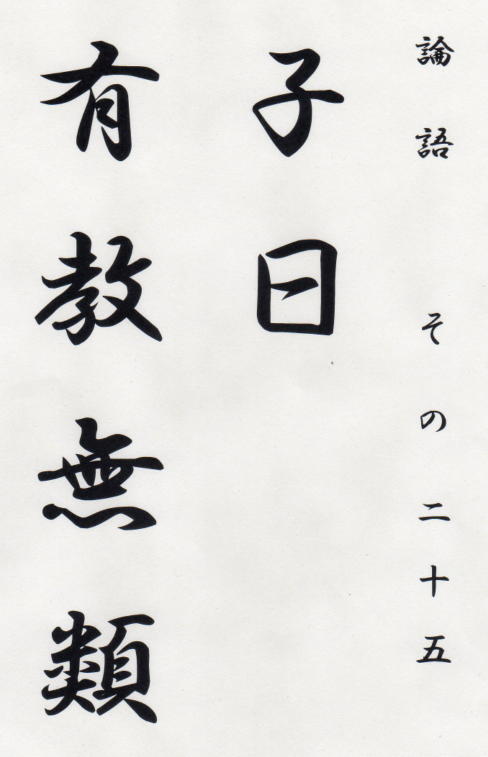 論語 その二十五
子曰
有教無類